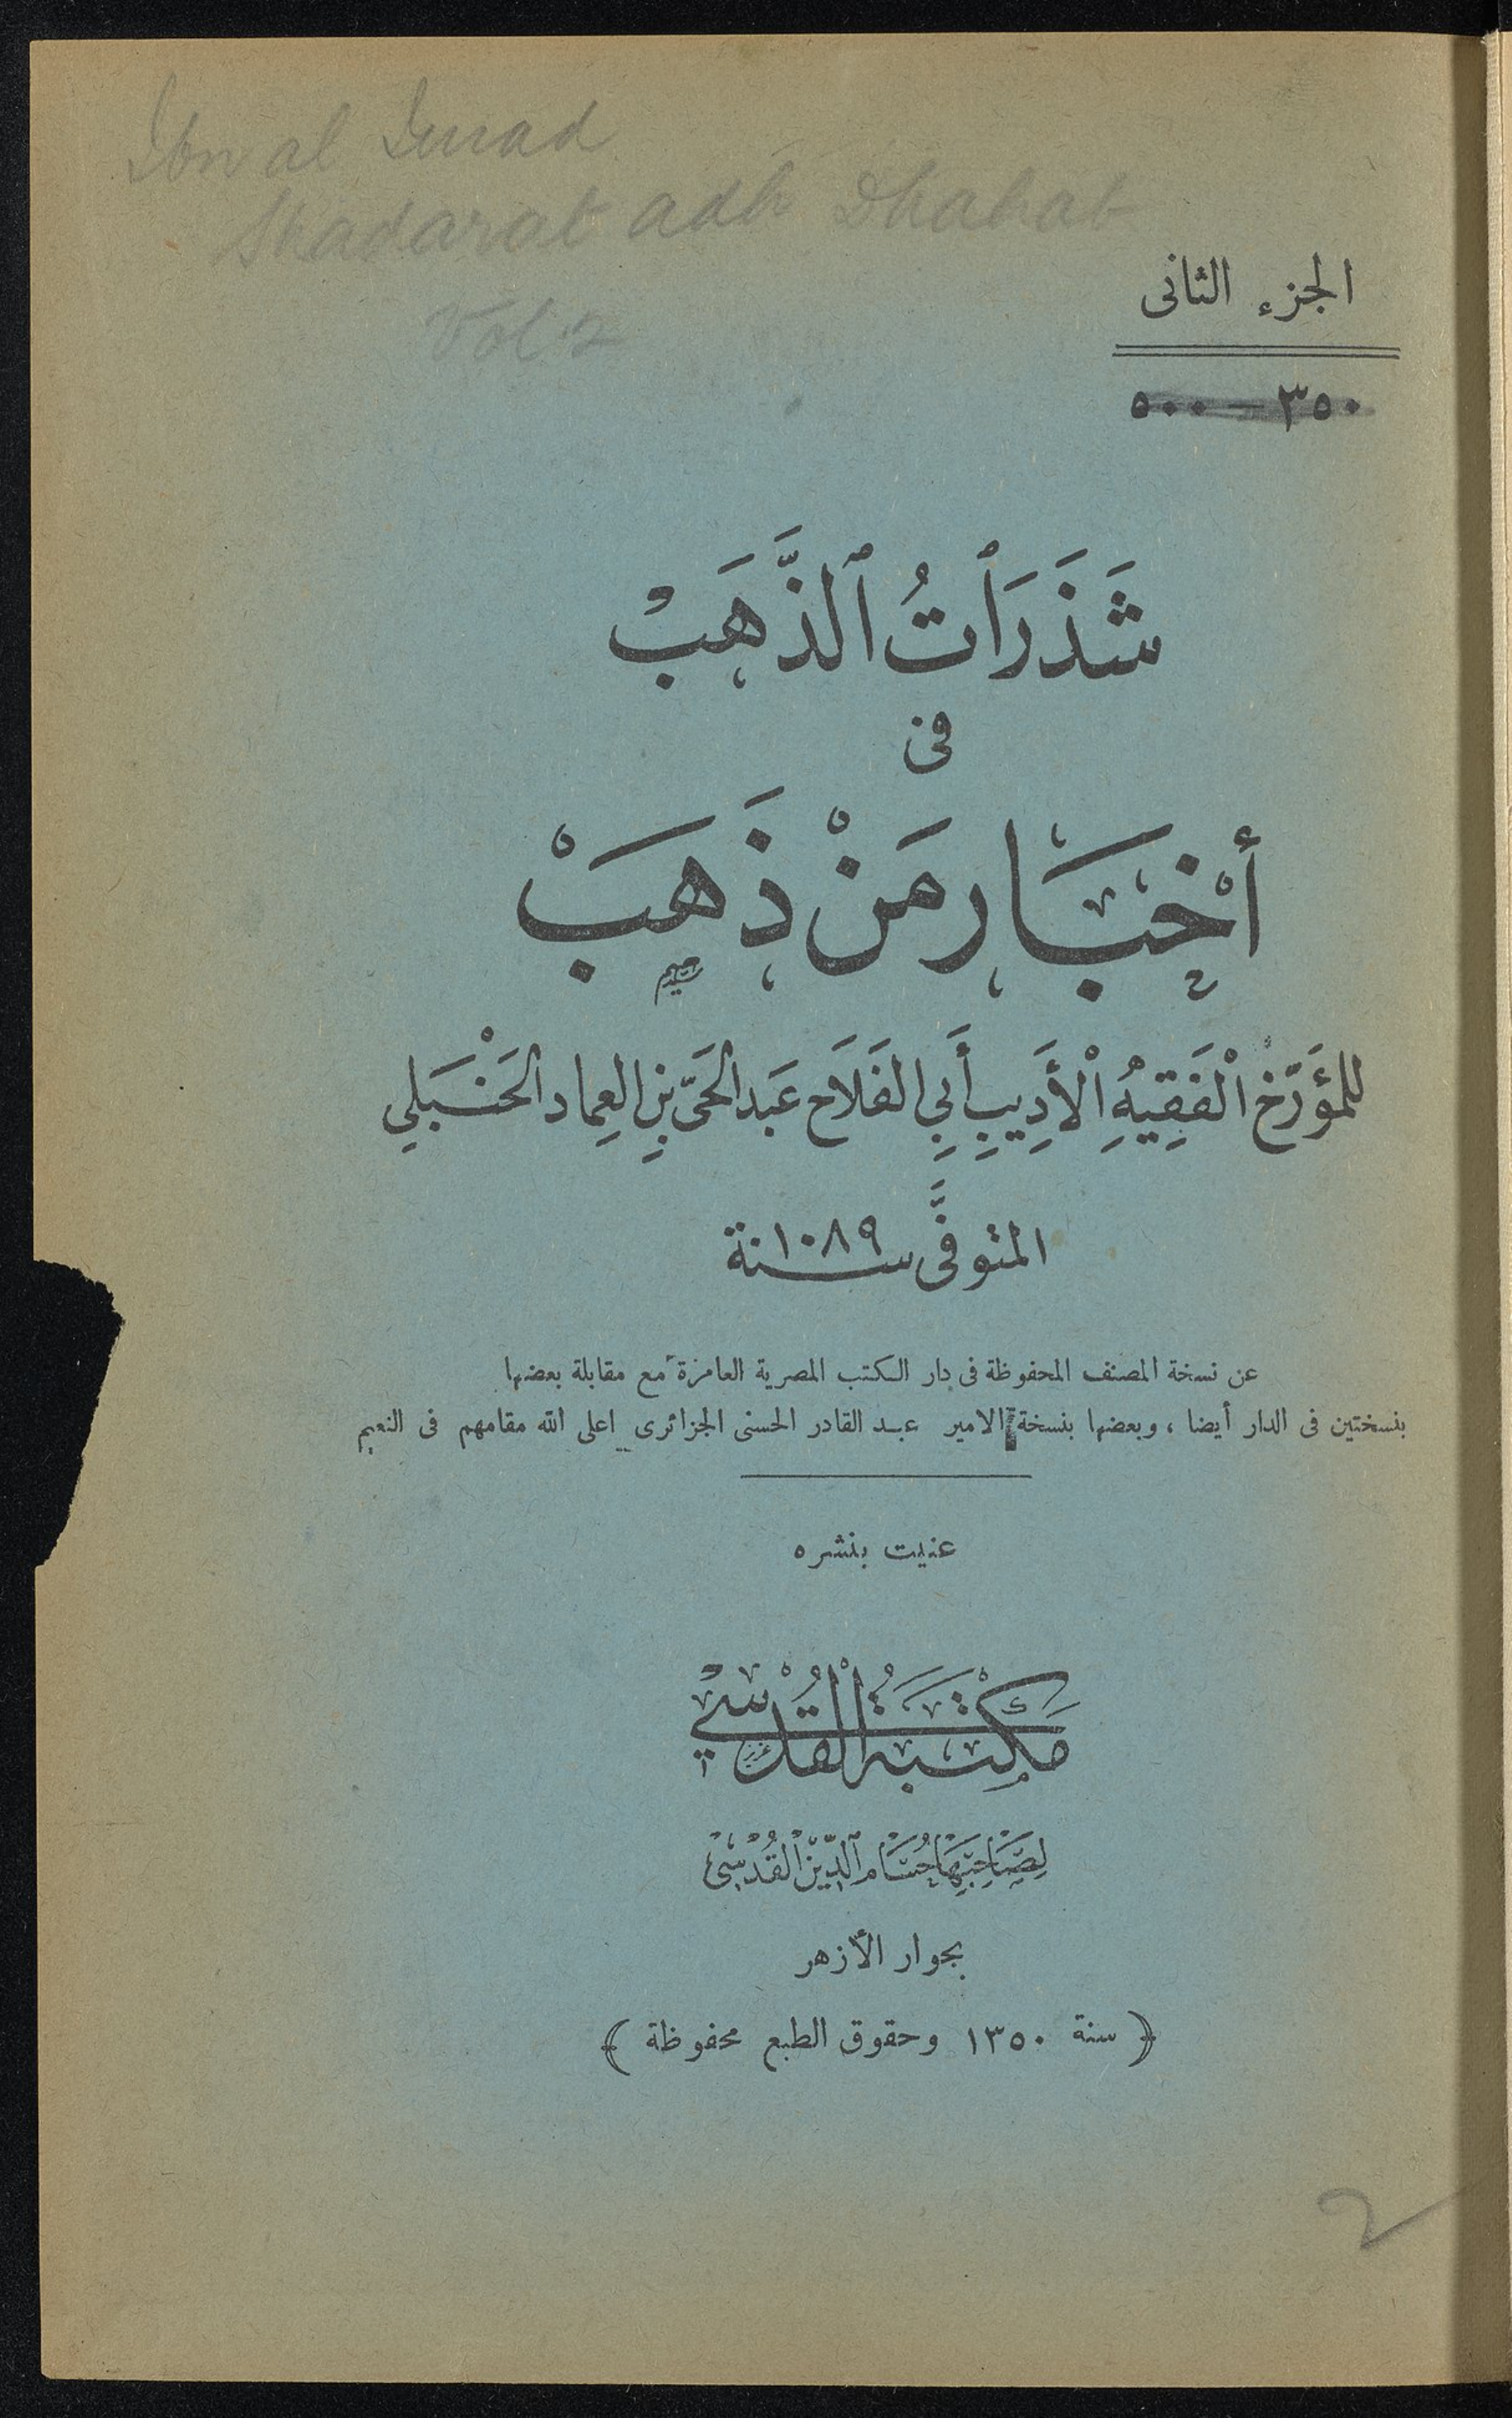 Ibn al Imad
Shadarat adh Dhahab
Vol. 2
الجزء الثانى
٣٥٠ — ٥٠٠
شَذَرَاتُ ٱلذَّهَبْ
فى
أَخْبَار مَنْ ذَهَبْ
للمؤَرّخ الْفَقِيهِ الْأَدِيبِ أَبِي الفَلَاح عَبد الحَىّ بنِ العِماد الحَنْبَلِي
المتوفَّى سنة ١٠٨٩
عن نسخة المصنف المحفوظة فى دار الكتب المصرية العامرة مع مقابلة بعضها
بنسختين فى الدار أيضا ، وبعضها بنسخة الامير عبد القادر الحسنى الجزائرى اعلى الله مقامهم فى النعيم
عنيت بنشره
مَكْتَبَةُ الْقُدْسِي
لِصَاحِبِهَا حُسَام ٱلدِّيْن الْقُدْسِيْ
بجوار الأزهر
﴿ سنة ١٣٥٠ وحقوق الطبع محفوظة ﴾
2